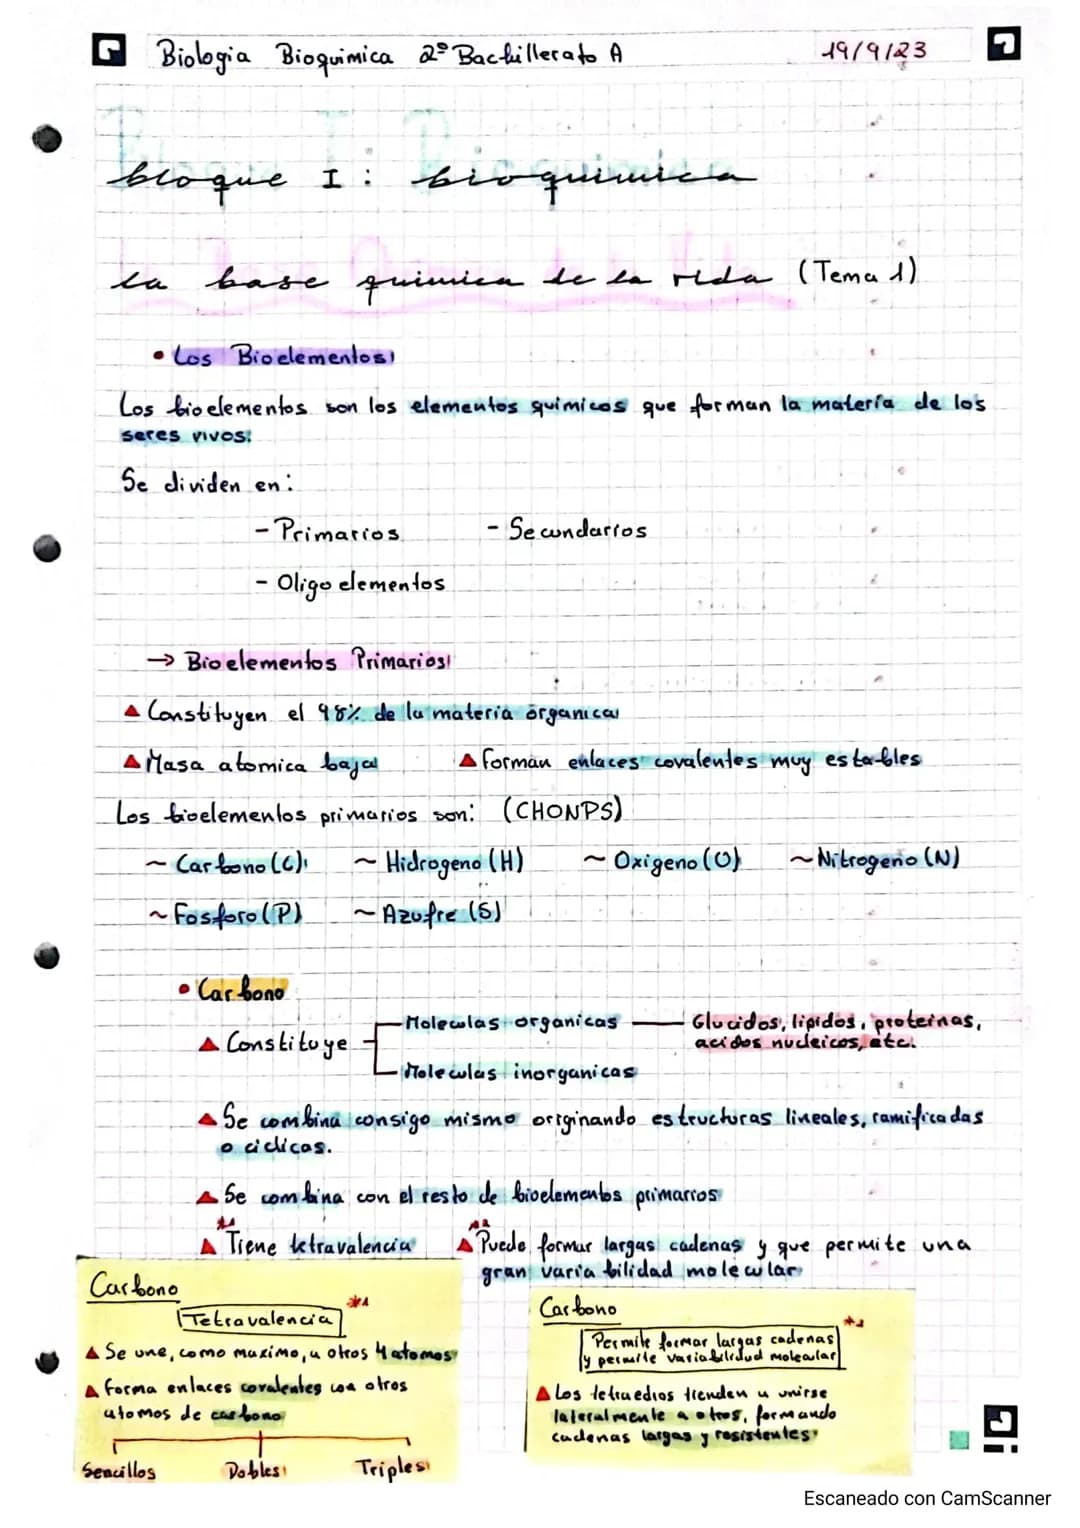 Biologia Bioquimica 2º Bachillerato A 19/9/23
bloque I: bioquimica
la base quimica de la vida (Tema 1)
• Los Bioelementos
Los bioelementos son los elementos quimicos que forman la materia de los
seres vivos.
Se dividen en:
- Primarios - Secundarios
- Oligoelementos
→ Bioelementos Primarios
▲ Constituyen el 98% de la materia organica
▲ Masa atomica baja ▲ forman enlaces covalentes muy estables
Los bioelementos primarios son: (CHONPS)
~ Carbono (C) ~ Hidrogeno (H) ~ Oxigeno (O) ~ Nitrogeno (N)
~ Fosforo (P) ~ Azufre (S)
• Carbono
Moleculas organicas — Glucidos, lipidos, proteinas,
▲ Constituye acidos nucleicos, etc.
Moleculas inorganicas
▲ Se combina consigo mismo originando estructuras lineales, ramificadas
o ciclicas.
▲ Se combina con el resto de bioelementos primarios
*1 *2
▲ Tiene tetravalencia ▲ Puede formar largas cadenas y que permite una
gran variabilidad molecular
Carbono
Tetravalencia *1
▲ Se une, como maximo, a otros 4 atomos
▲ forma enlaces covalentes con otros
atomos de carbono
Sencillos Dobles Triples
Carbono
*2
Permite formar largas cadenas
y permite variabilidad molecular
▲ Los tetraedros tienden a unirse
lateralmente a otros, formando
cadenas largas y resistentes
Escaneado con CamScanner